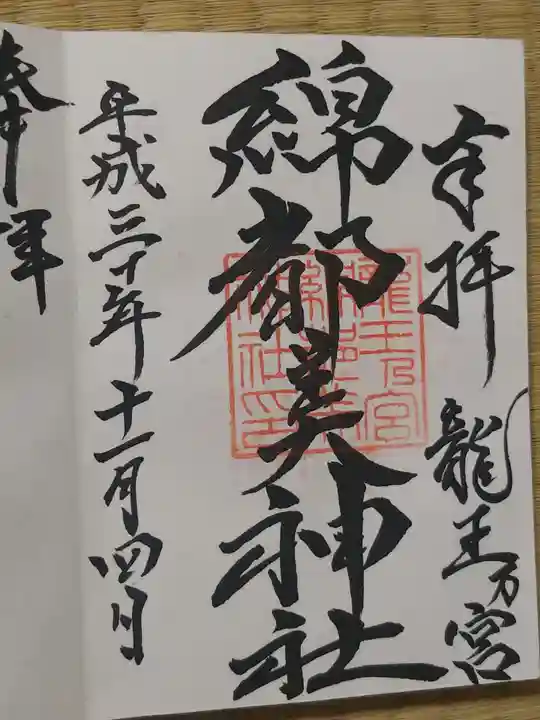 奉拝 龍王乃宮
綿都美神社
龍王乃宮
綿都美神
社印
平成三十年十一月四日
奉拝